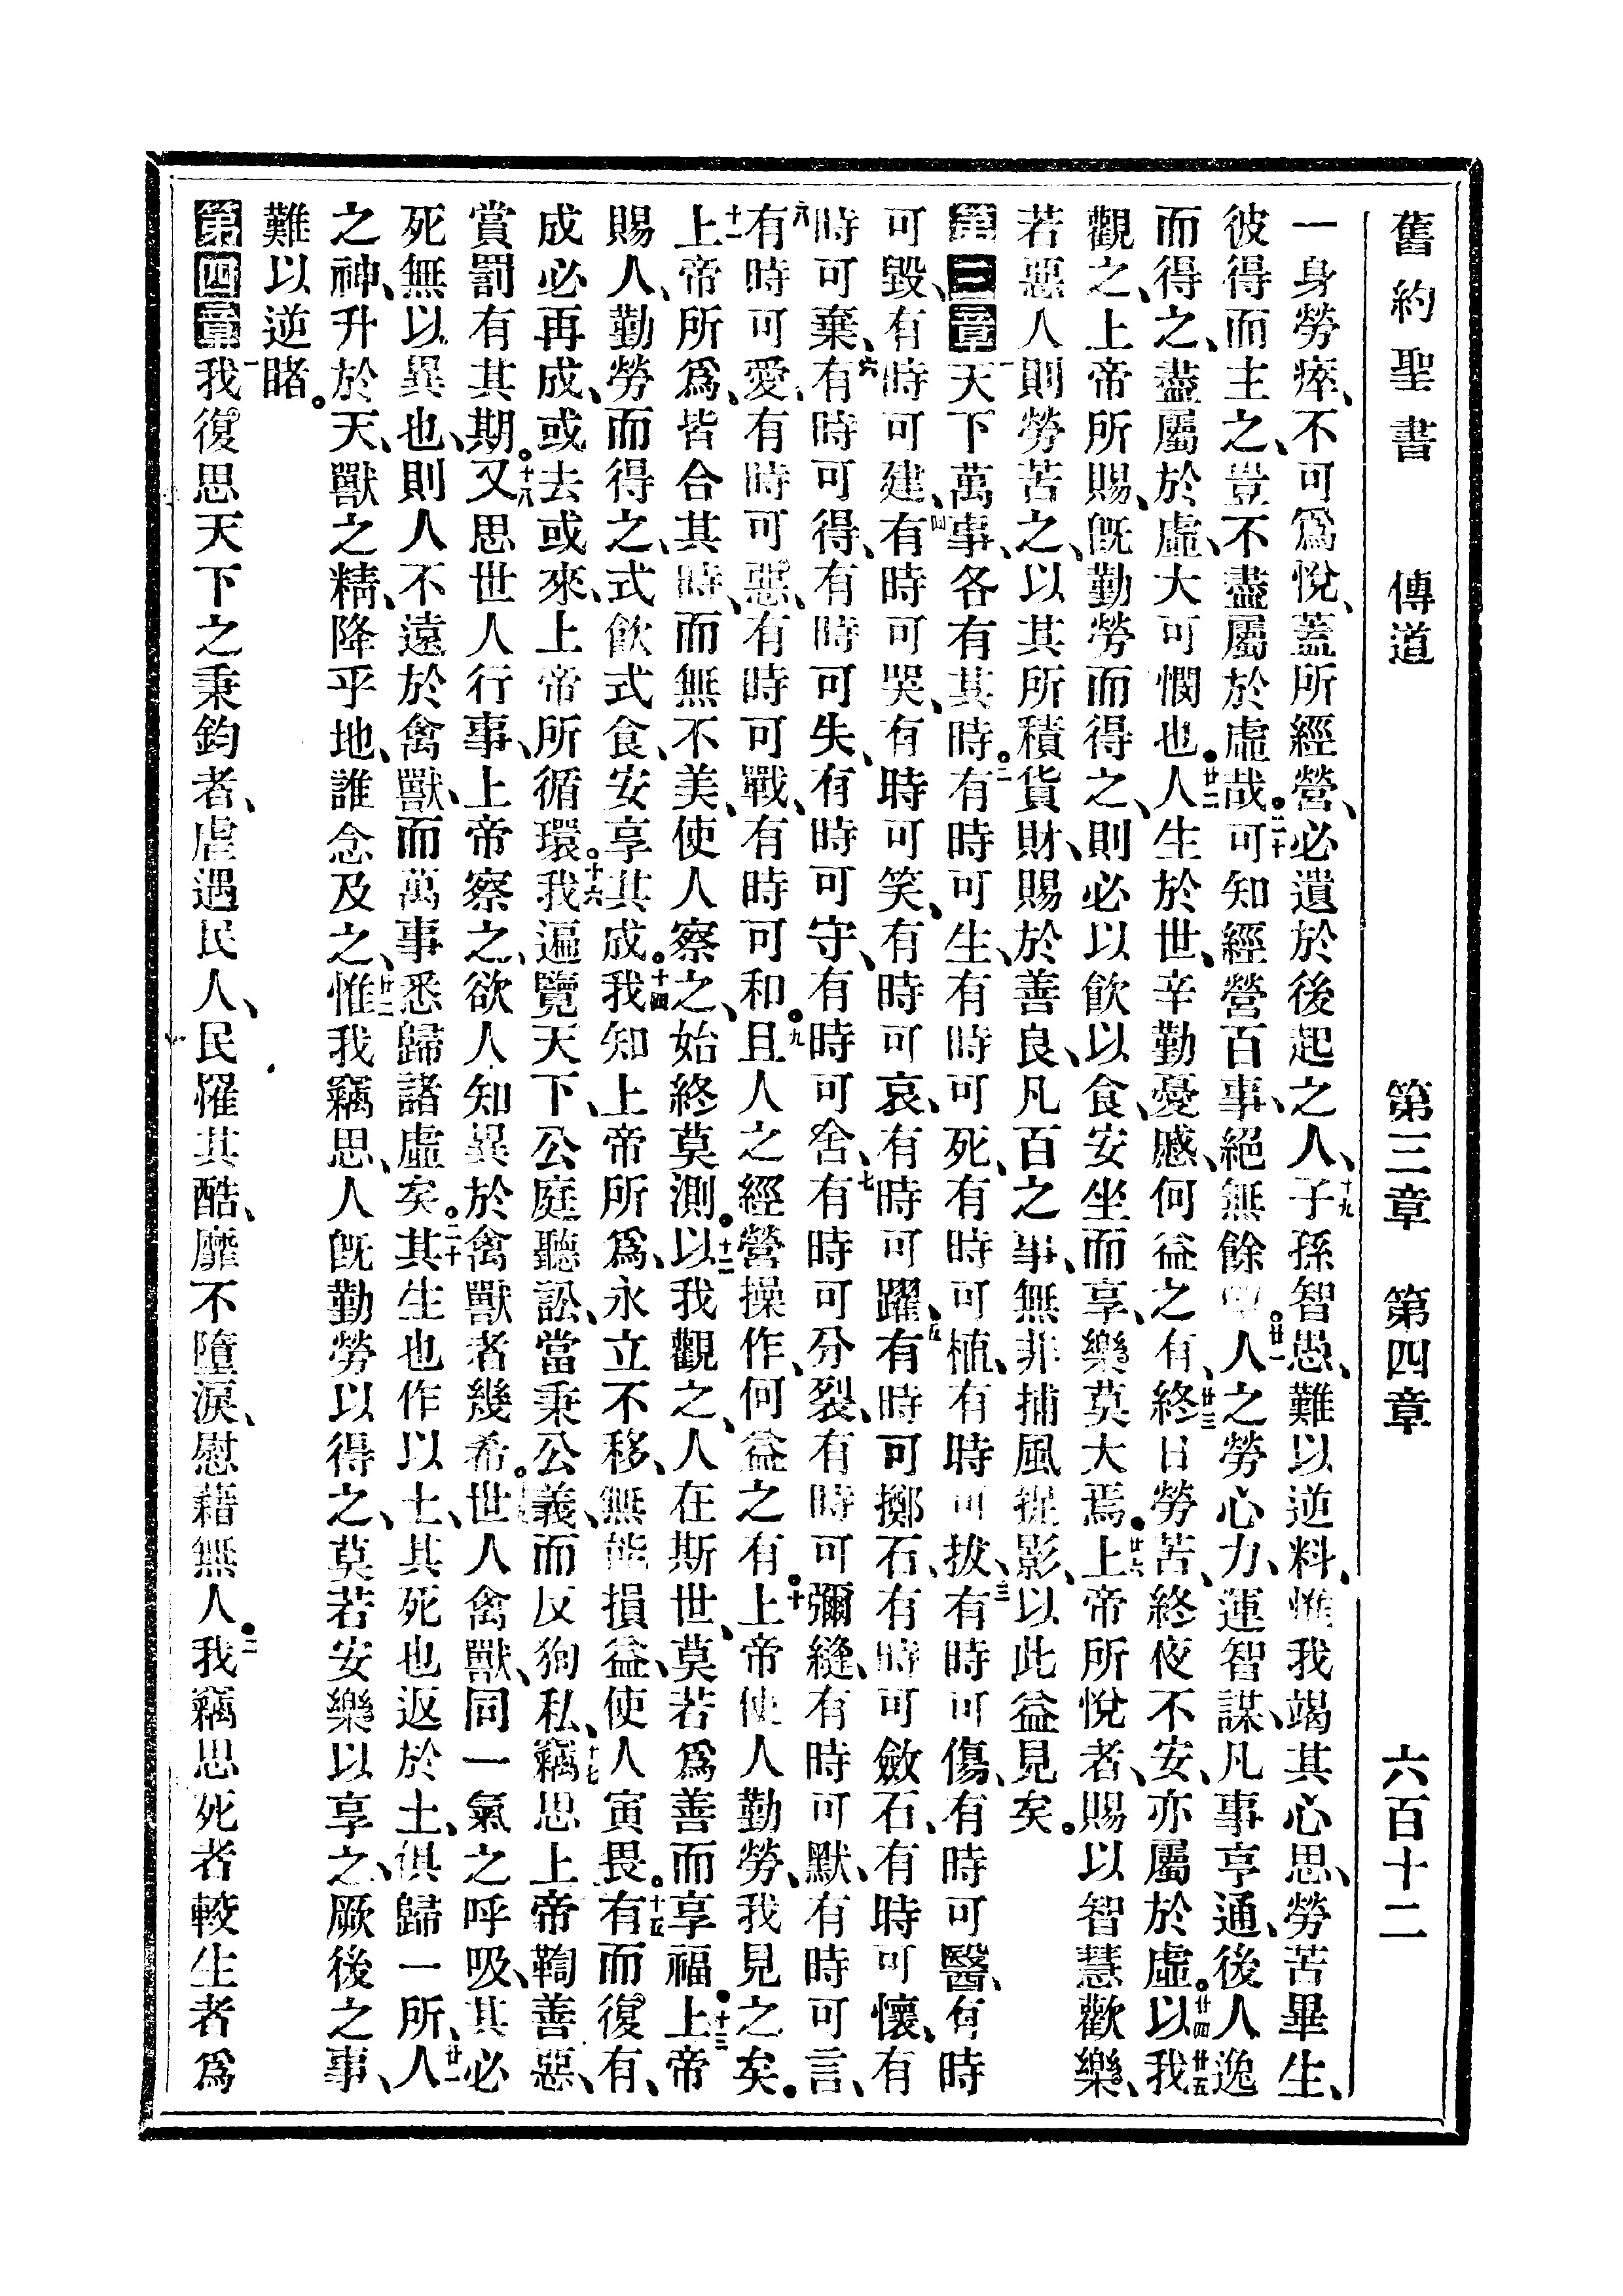 舊約聖書　傳道　第三章　第四章　六百十二
一身勞瘁、不可爲悅、蓋所經營、必遺於後起之人、十九子孫智愚、難以逆料、惟我竭其心思、勞苦畢生、
彼得而主之、豈不盡屬於虛哉。二十可知經營百事、絕無餘。廿一人之勞心力、運智謀、凡事亨通、後人逸
而得之、盡屬於虛、大可憫也。廿二人生於世、辛勤憂慼、何益之有、廿三終日勞苦、終夜不安、亦屬於虛。廿四以我廿五
觀之、上帝所賜、旣勤勞而得之、則必以飮以食、安坐而享、樂莫大焉。廿六上帝所悅者、賜以智慧歡樂、
若惡人則勞苦之、以其所積貨財、賜於善良、凡百之事、無非捕風捉影、以此益見矣。
第三章一天下萬事、各有其時。二有時可生、有時可死、有時可植、有時可拔、三有時可傷、有時可醫、有時
可毀、有時可建、四有時可哭、有時可笑、有時可哀、有時可躍、五有時可擲石、有時可斂石、有時可懷、有
時可棄、六有時可得、有時可失、有時可守、有時可舍、七有時可分裂、有時可彌縫、有時可默、有時可言、
八有時可愛、有時可惡、有時可戰、有時可和。九且人之經營操作、何益之有。十上帝使人勤勞、我見之矣。
十一上帝所爲、皆合其時、而無不美、使人察之、始終莫測。十二以我觀之、人在斯世、莫若爲善而享福。十三上帝
賜人、勤勞而得之、式飮式食、安享其成。十四我知上帝所爲、永立不移、無能損益、使人寅畏。十五有而復有、
成必再成、或去或來、上帝所循環。十六我遍覽天下、公庭聽訟、當秉公義、而反狥私、十七竊思上帝鞫善惡、
賞罰有其期。十八又思世人行事、上帝察之、欲人知異於禽獸者幾希。世人禽獸、同一氣之呼吸、其必
死無以異也、則人不遠於禽獸、而萬事悉歸諸虛矣。二十其生也作以土、其死也返於土、俱歸一所、廿一人
之神、升於天、獸之精、降乎地、誰念及之、廿二惟我竊思、人旣勤勞以得之、莫若安樂以享之、厥後之事、
難以逆睹。
第四章一我復思天下之秉鈞者、虐遇民人、民罹其酷、靡不墮淚、慰藉無人。二我竊思死者較生者爲